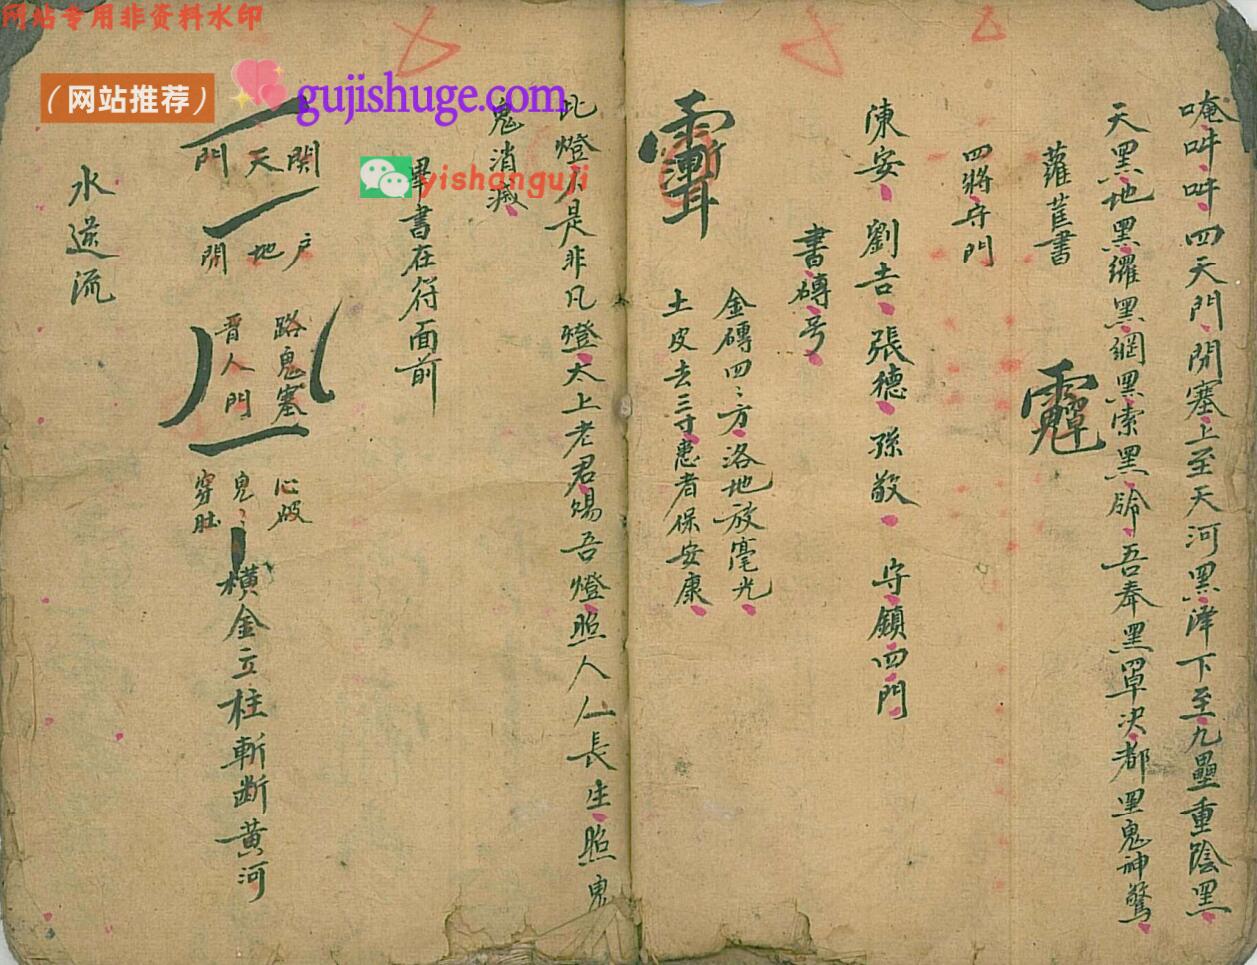 网站专用非资料水印
（网站推荐）
gujishuge.com
yishanguji
唵吽吽四天門閉塞上至天河黑澤下至九壘重陰黑
天黑地黑纙黑網黑索黑
吾奉黑罩决都黑鬼神驚
書
四將守門
陳安劉吉張德孫敬 守鎮四門
書磚号
金磚四方洛地放毫光
土皮去三寸患者保安康
比燈不是非凡燈太上老君賜吾燈照人人長生照鬼
鬼消滅
畢書在符面前
関天門
户地閉
路鬼塞
晋人門
心破
鬼
穿肚
橫金立柱斬断黄河
水逆流